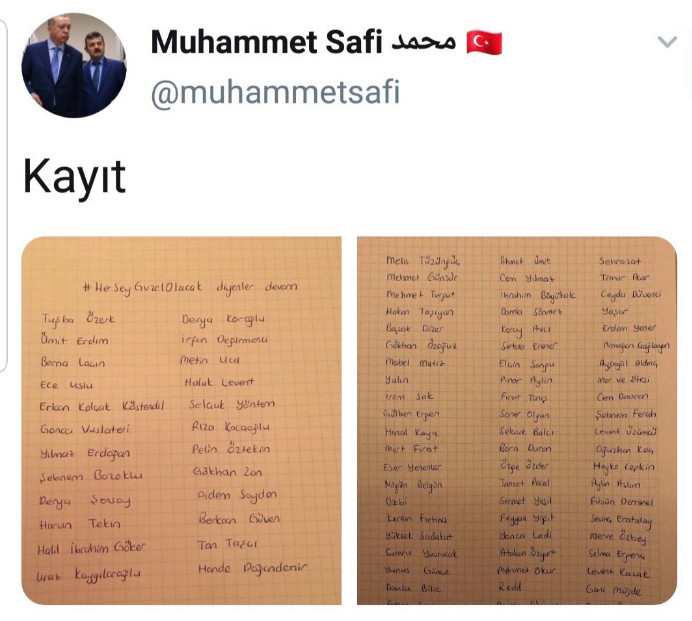 Muhammet Safi محمد
@muhammetsafi
Kayıt
#HerSeyGuzelOlacak diyenler devam
Tuğba Özerk
Ümit Erdim
Berna Laçin
Ece Uslu
Erkan Kolçak Köstendil
Gonca Vuslateri
Yılmaz Erdoğan
Şebnem Bozoklu
Derya Şensoy
Harun Tekin
Halil İbrahim Göker
Uraz Kaygılaroğlu
Derya Karaoğlu
İrfan Değirmenci
Metin Uca
Haluk Levent
Selçuk Yöntem
Rıza Kocaoğlu
Pelin Öztekin
Gökhan Zan
Didem Soydan
Berkan Güven
Tan Taşçı
Hande Doğandemir
Melis Tüzüngüç
Mehmet Günsür
Mehmet Turgut
Hakan Taşıyan
Başak Dizer
Gökhan Özoğuz
Mabel Matiz
Yalın
İrem Sak
Gülben Ergen
Hünal Kaya
Mert Fırat
Eser Yenenler
Nilgün Belgün
Ozbi
Kerem Fırtına
Yüksel Sadakat
Cumru Yavrucuk
Yunus Günçe
Danilo Bilic
Ahmet Ümit
Cem Yılmaz
İbrahim Büyükak
Damla Sönmez
Koray Avcı
Sertab Erener
Elçin Sangu
Pınar Aylin
Fırat Tanış
Soner Olgun
Selçuk Balcı
Bora Duran
Özge Özder
Tanset Pacal
Sermet Yeşil
Feyyaz Yiğit
Yonca Lodi
Atakan Özyurt
Mehmet Okur
Redd
Şehrazat
Timur Acar
Ceyda Düvenci
Yaşar
Erdem Yener
Armağan Çağlayan
Ayşegül Aldinç
Mor ve Ötesi
Cem Davran
Şebnem Ferah
Levent Üzümcü
Oğuzhan Koç
Hayko Cepkin
Aylin Aslım
Füsun Demirel
Sevinç Erbulak
Merve Özbey
Selma Ergenç
Levent Kazak
Gani Müjde